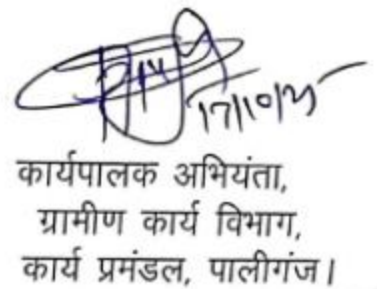 17/10/25
कार्यपालक अभियंता,
ग्रामीण कार्य विभाग,
कार्य प्रमंडल, पालीगंज।